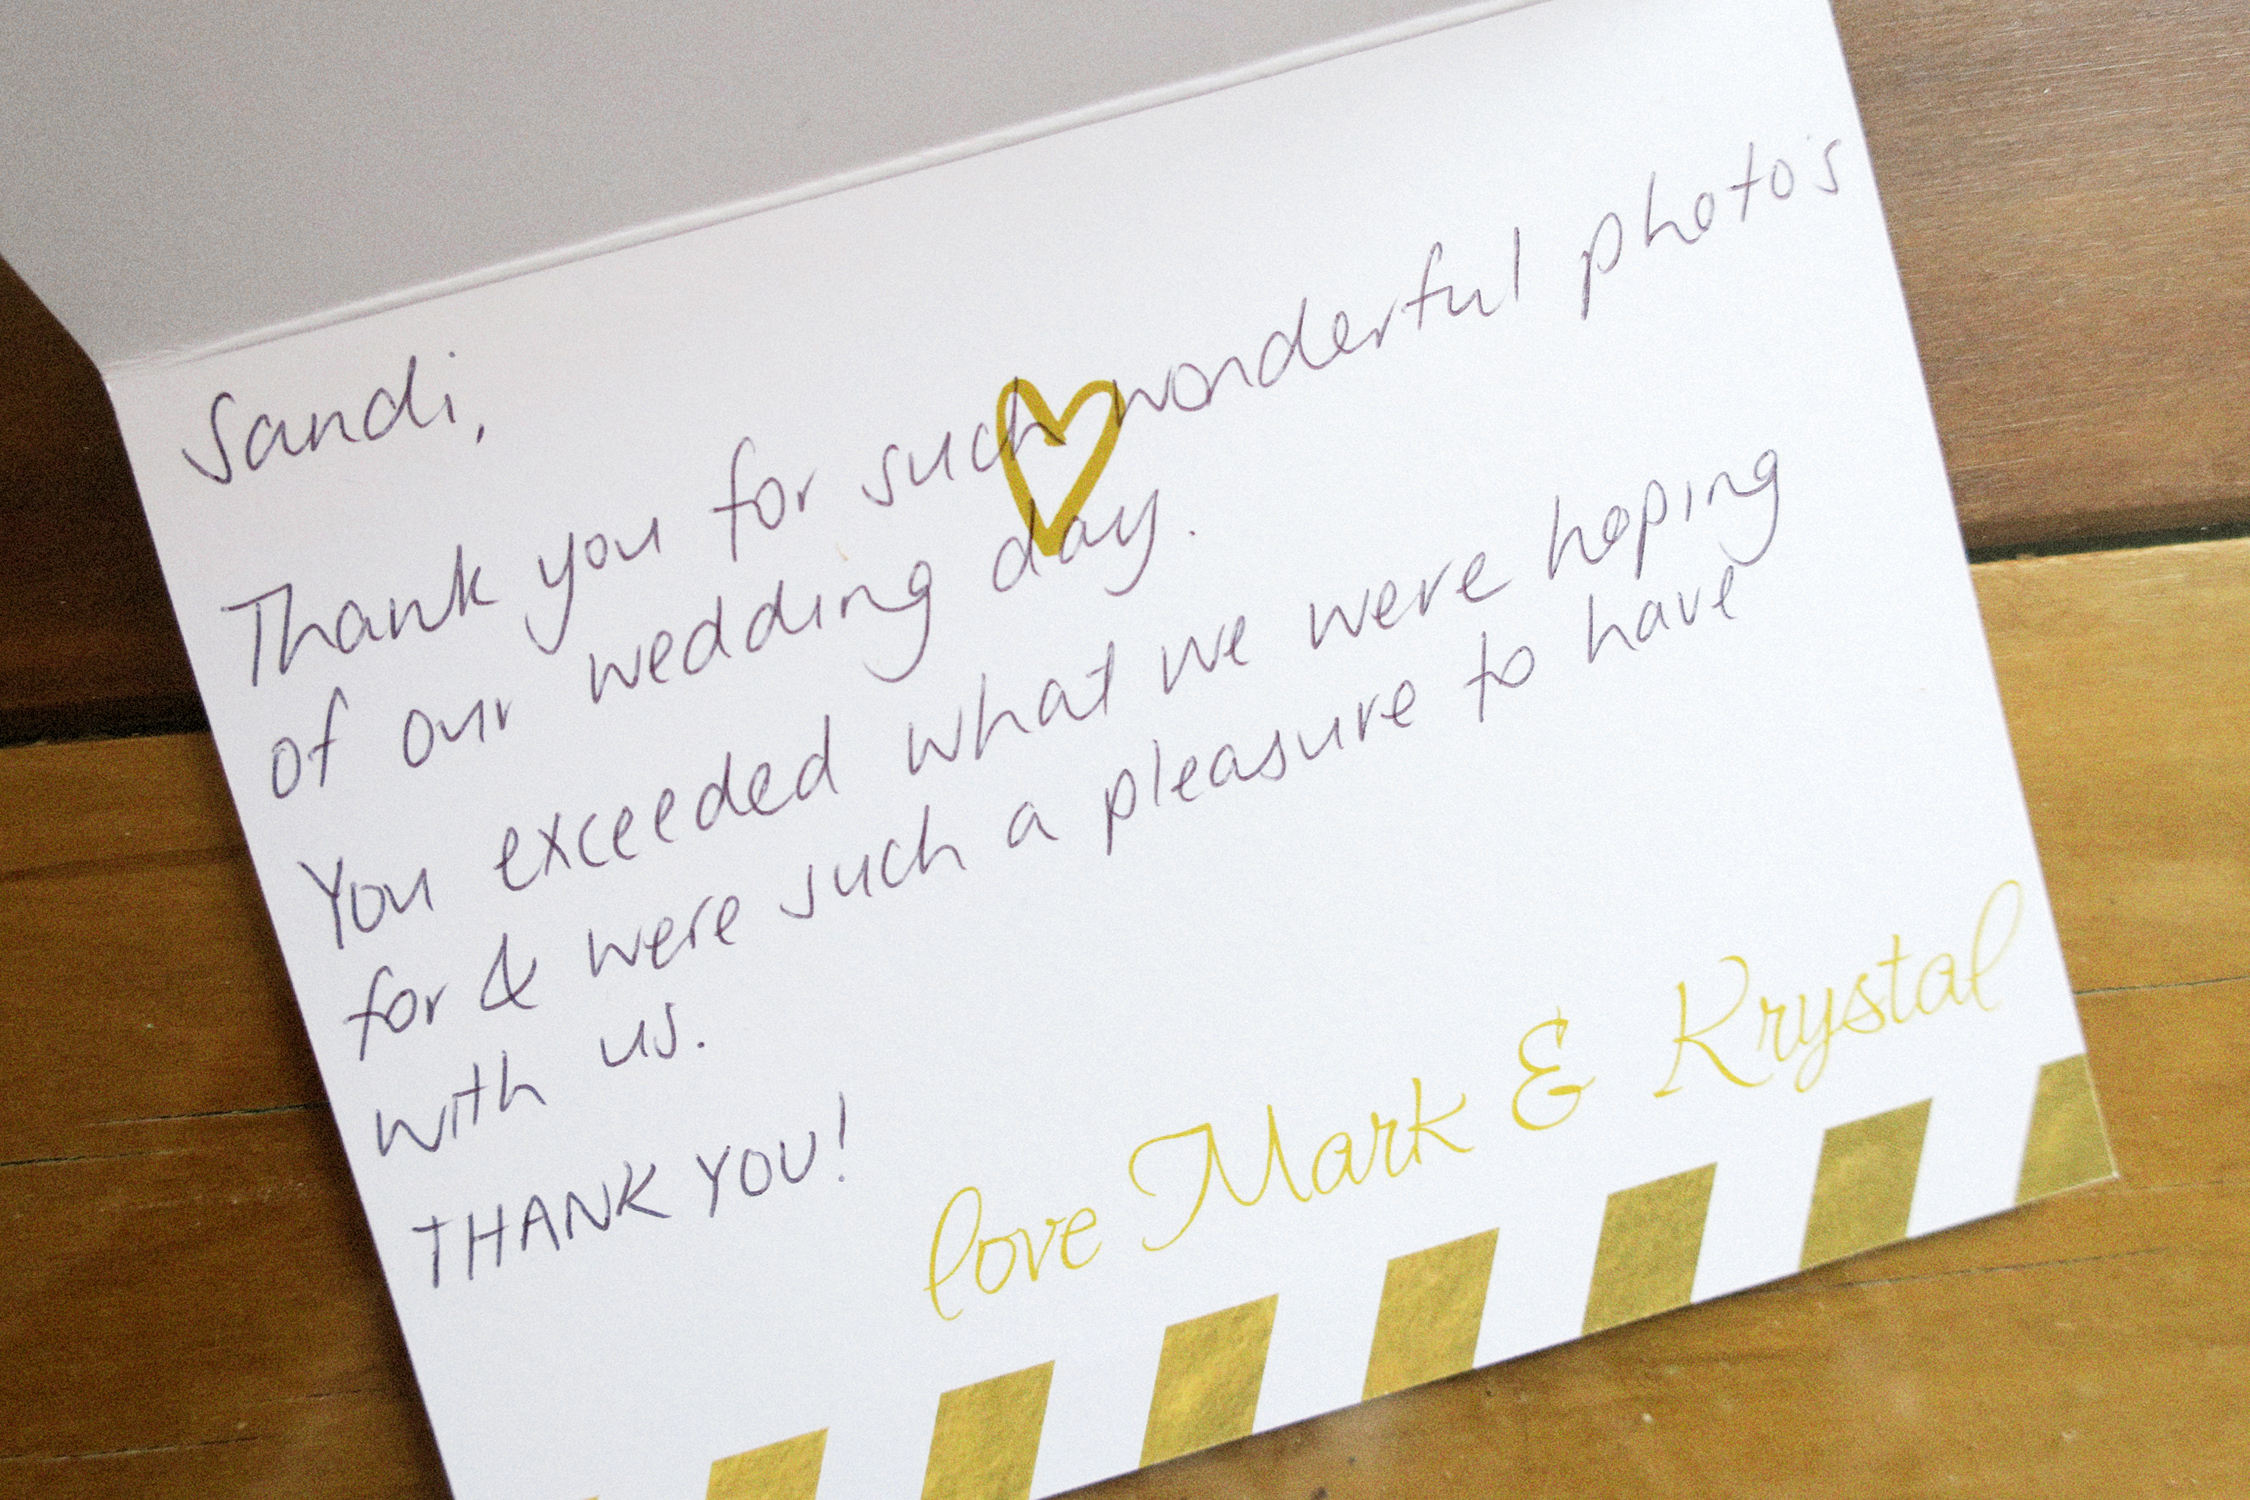 Sandi,
Thank you for such wonderful photo's
of our wedding day.
You exceeded what we were hoping
for & were such a pleasure to have
with us.
THANK YOU!
love Mark & Krystal